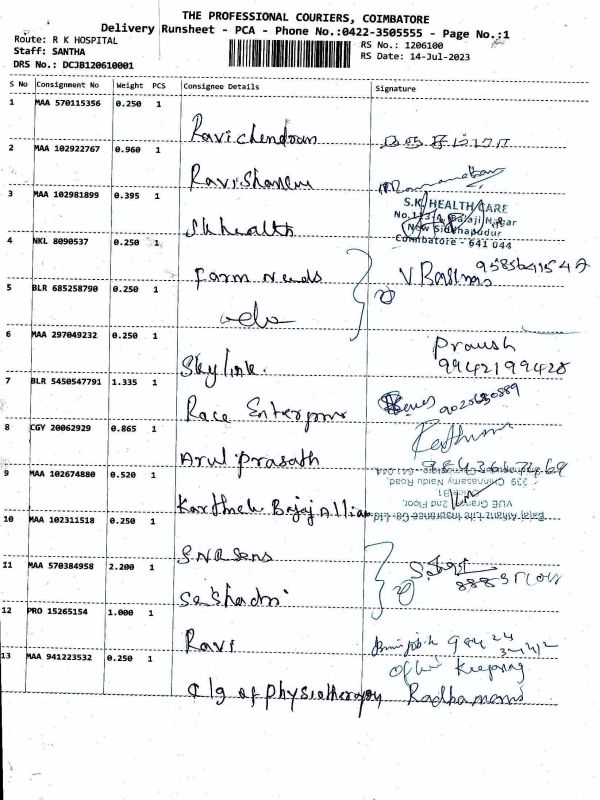 THE PROFESSIONAL COURIERS, COIMBATORE
Delivery Runsheet - PCA - Phone No.:0422-3505555 - Page No.:1
Route: R K HOSPITAL
Staff: SANTHA
DRS No.: DCJB120610001
RS No.: 1206100
RS Date: 14-Jul-2023
S No Consignment No Weight PCS Consignee Details Signature
1 MAA 570115356 0.250 1
Ravichendran
2 MAA 102922767 0.960 1
Ravishanker
3 MAA 102981899 0.395 1
Sk health
S.K. HEALTH CARE
Balaji Nagar
New Sidhapudur
Coimbatore - 641 044
4 NKL 8090537 0.250 1
Farm Needs
5 BLR 685258790 0.250 1
6 MAA 297049232 0.250 1
Sky link.
9942199428
7 BLR 5450547791 1.335 1
Race Enterprise
8 CGY 20062929 0.865 1
Arul Prasath
9 MAA 102674880 0.520 1
Karthick Bajaj Allian
339, Chinnasamy Naidu Road,
VUE Grande, 2nd Floor,
Bajaj Allianz Life Insurance Co. Ltd
10 MAA 102311518 0.250 1
SNR Sons
11 MAA 570384958 2.200 1
Seshadri
12 PRO 15265154 1.000 1
Ravi
13 MAA 941223532 0.250 1
Keeping
Clg of Physiotherapy Radhamani